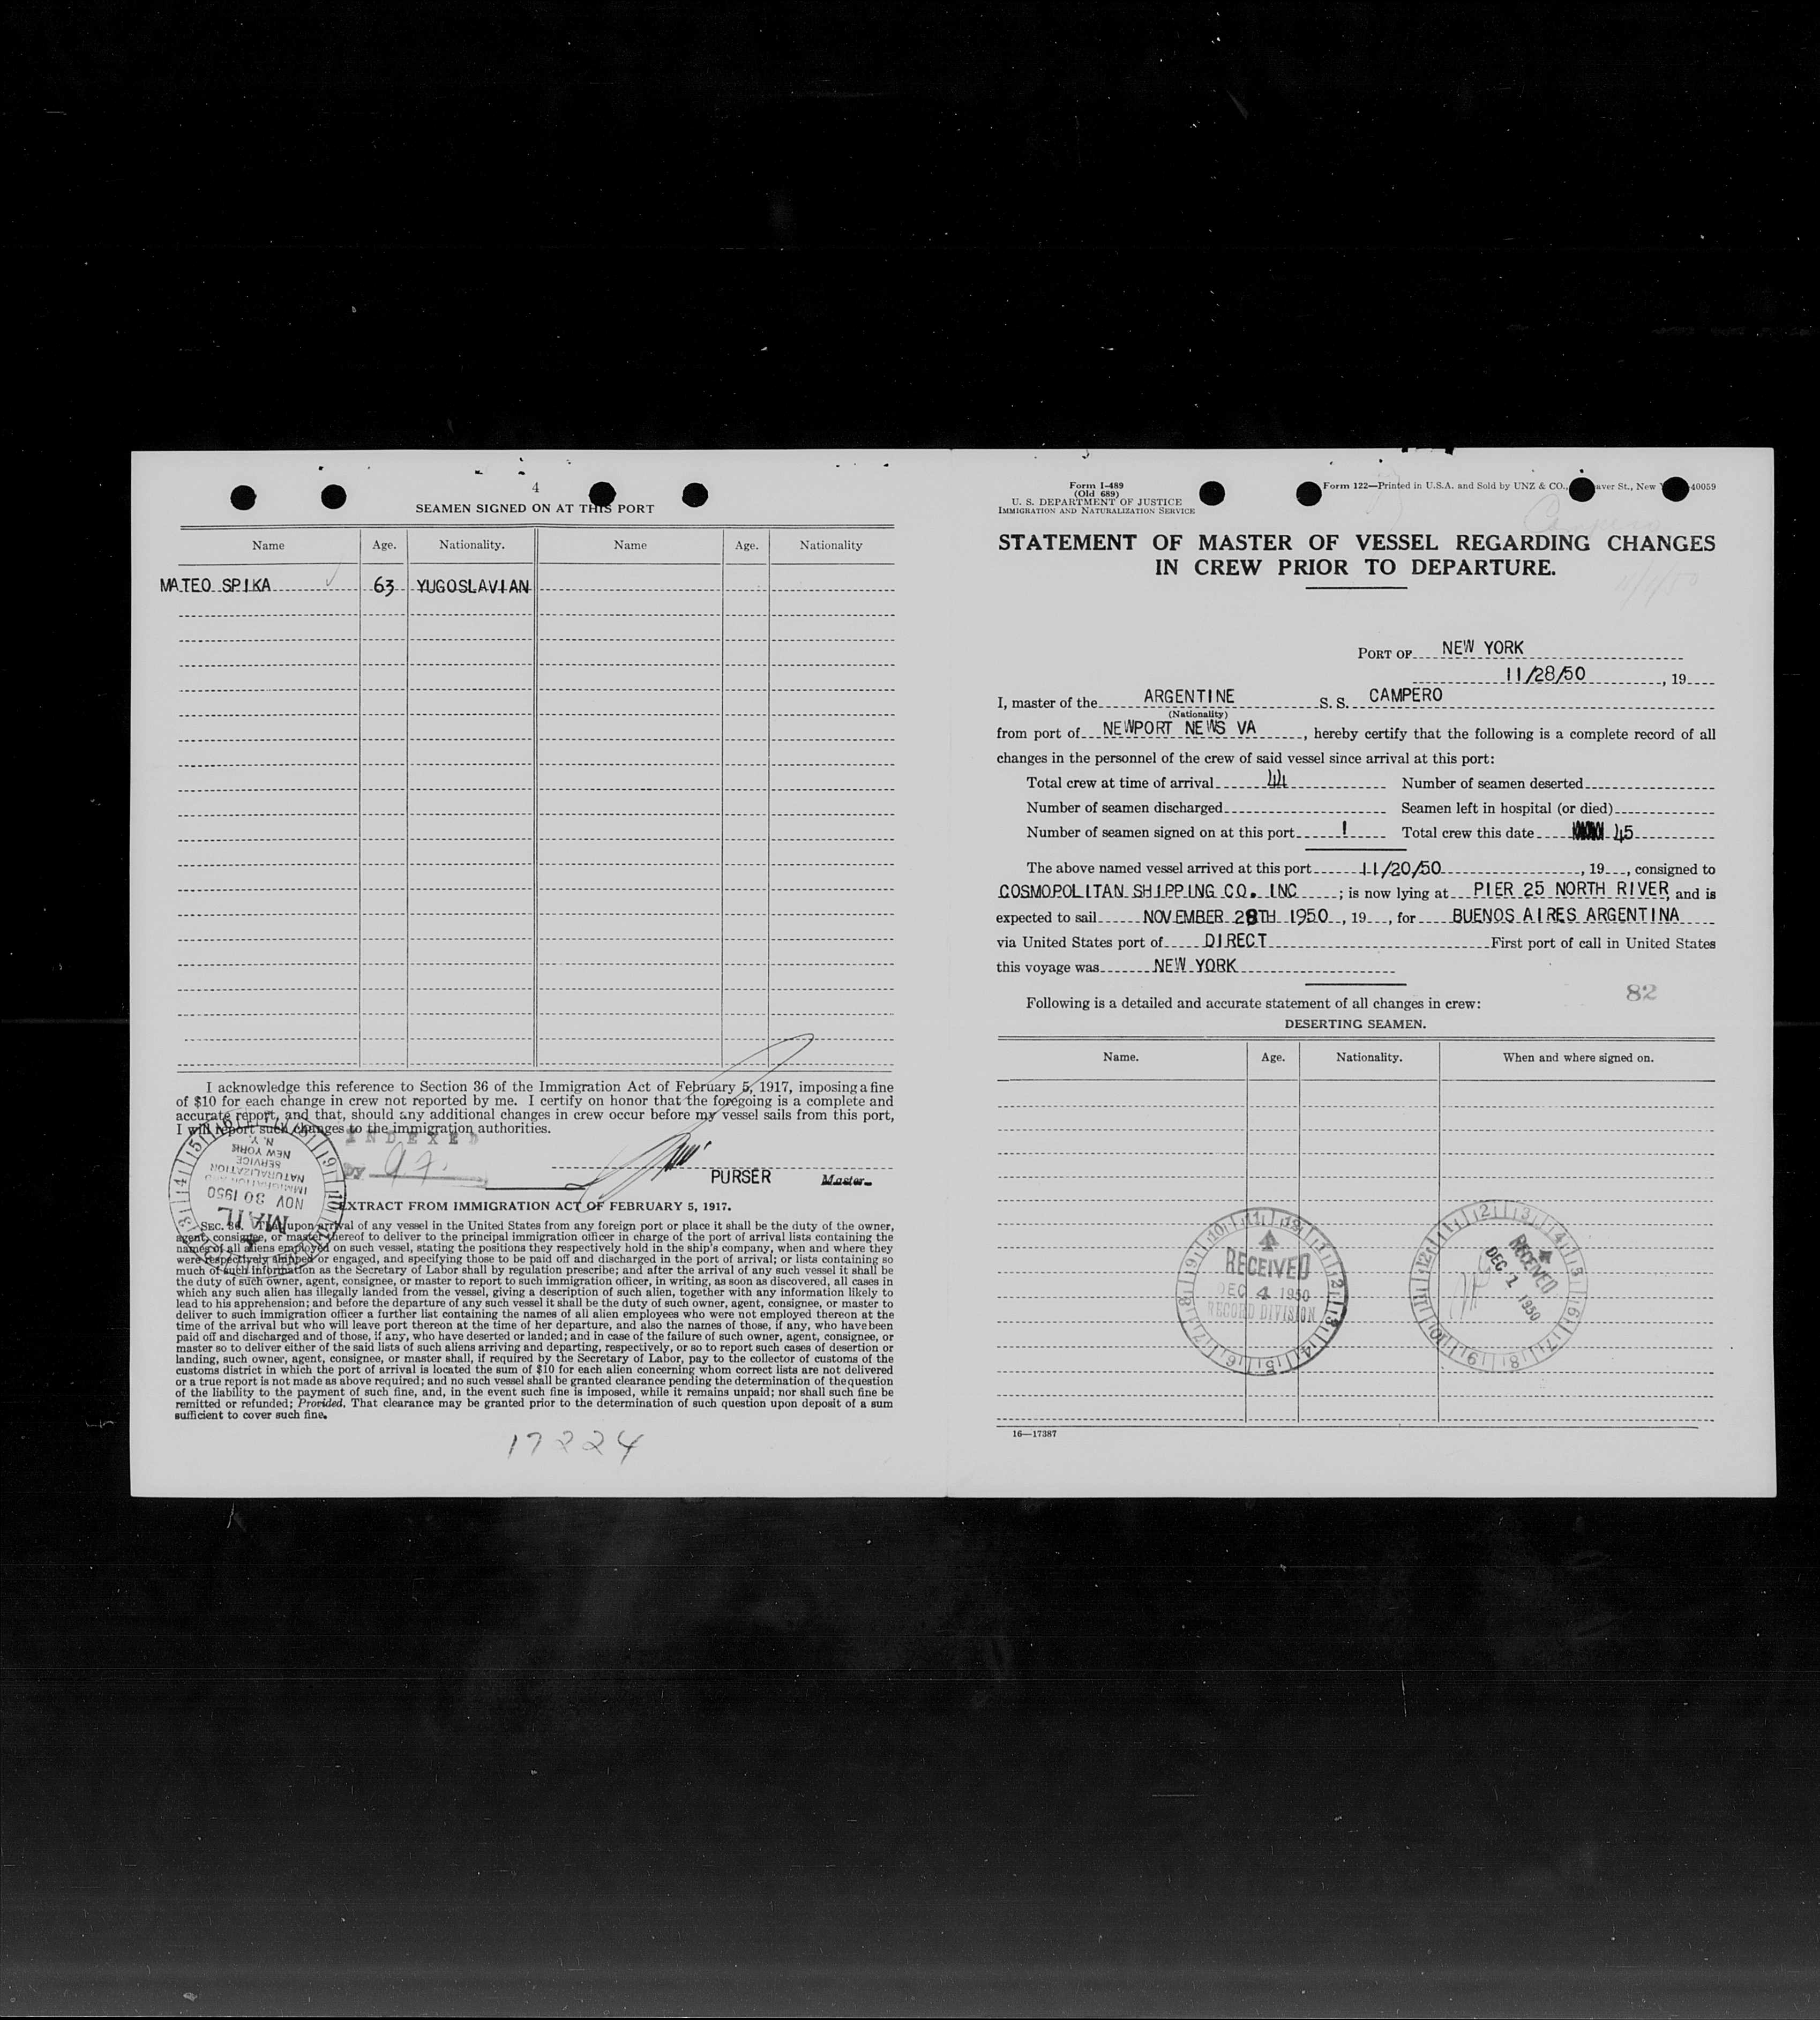 4
SEAMEN SIGNED ON AT THIS PORT
Name Age. Nationality. Name Age. Nationality
MATEO SPIKA 63 YUGOSLAVIAN
I acknowledge this reference to Section 36 of the Immigration Act of February 5, 1917, imposing a fine
of $10 for each change in crew not reported by me. I certify on honor that the foregoing is a complete and
accurate report, and that, should any additional changes in crew occur before my vessel sails from this port,
I will report such changes to the immigration authorities.
INDEXED
by
PURSER Master
MAIL
NOV 30 1950
IMMIGRATION AND
NATURALIZATION
SERVICE
NEW YORK
N. Y.
EXTRACT FROM IMMIGRATION ACT OF FEBRUARY 5, 1917.
SEC. 36. That upon arrival of any vessel in the United States from any foreign port or place it shall be the duty of the owner,
agent, consignee, or master thereof to deliver to the principal immigration officer in charge of the port of arrival lists containing the
names of all aliens employed on such vessel, stating the positions they respectively hold in the ship's company, when and where they
were respectively shipped or engaged, and specifying those to be paid off and discharged in the port of arrival; or lists containing so
much of such information as the Secretary of Labor shall by regulation prescribe; and after the arrival of any such vessel it shall be
the duty of such owner, agent, consignee, or master to report to such immigration officer, in writing, as soon as discovered, all cases in
which any such alien has illegally landed from the vessel, giving a description of such alien, together with any information likely to
lead to his apprehension; and before the departure of any such vessel it shall be the duty of such owner, agent, consignee, or master to
deliver to such immigration officer a further list containing the names of all alien employees who were not employed thereon at the
time of the arrival but who will leave port thereon at the time of her departure, and also the names of those, if any, who have been
paid off and discharged and of those, if any, who have deserted or landed; and in case of the failure of such owner, agent, consignee, or
master so to deliver either of the said lists of such aliens arriving and departing, respectively, or so to report such cases of desertion or
landing, such owner, agent, consignee, or master shall, if required by the Secretary of Labor, pay to the collector of customs of the
customs district in which the port of arrival is located the sum of $10 for each alien concerning whom correct lists are not delivered
or a true report is not made as above required; and no such vessel shall be granted clearance pending the determination of the question
of the liability to the payment of such fine, and, in the event such fine is imposed, while it remains unpaid; nor shall such fine be
remitted or refunded; Provided, That clearance may be granted prior to the determination of such question upon deposit of a sum
sufficient to cover such fine.
17224
Form I-489
(Old 689)
U. S. DEPARTMENT OF JUSTICE
IMMIGRATION AND NATURALIZATION SERVICE
Form 122—Printed in U.S.A. and Sold by UNZ & CO., aver St., New 40059
Campero
STATEMENT OF MASTER OF VESSEL REGARDING CHANGES
IN CREW PRIOR TO DEPARTURE.
PORT OF NEW YORK
11/28/50, 19
I, master of the ARGENTINE S. S. CAMPERO
(Nationality)
from port of NEWPORT NEWS VA, hereby certify that the following is a complete record of all
changes in the personnel of the crew of said vessel since arrival at this port:
Total crew at time of arrival 44 Number of seamen deserted
Number of seamen discharged Seamen left in hospital (or died)
Number of seamen signed on at this port 1 Total crew this date 45
The above named vessel arrived at this port 11/20/50, 19, consigned to
COSMOPOLITAN SHIPPING CO. INC; is now lying at PIER 25 NORTH RIVER, and is
expected to sail NOVEMBER 28TH 1950, 19, for BUENOS AIRES ARGENTINA
via United States port of DIRECT First port of call in United States
this voyage was NEW YORK
82
Following is a detailed and accurate statement of all changes in crew:
DESERTING SEAMEN.
Name. Age. Nationality. When and where signed on.
RECEIVED
DEC 4 1950
RECORD DIVISION
RECEIVED
DEC 1 1950
16—17387